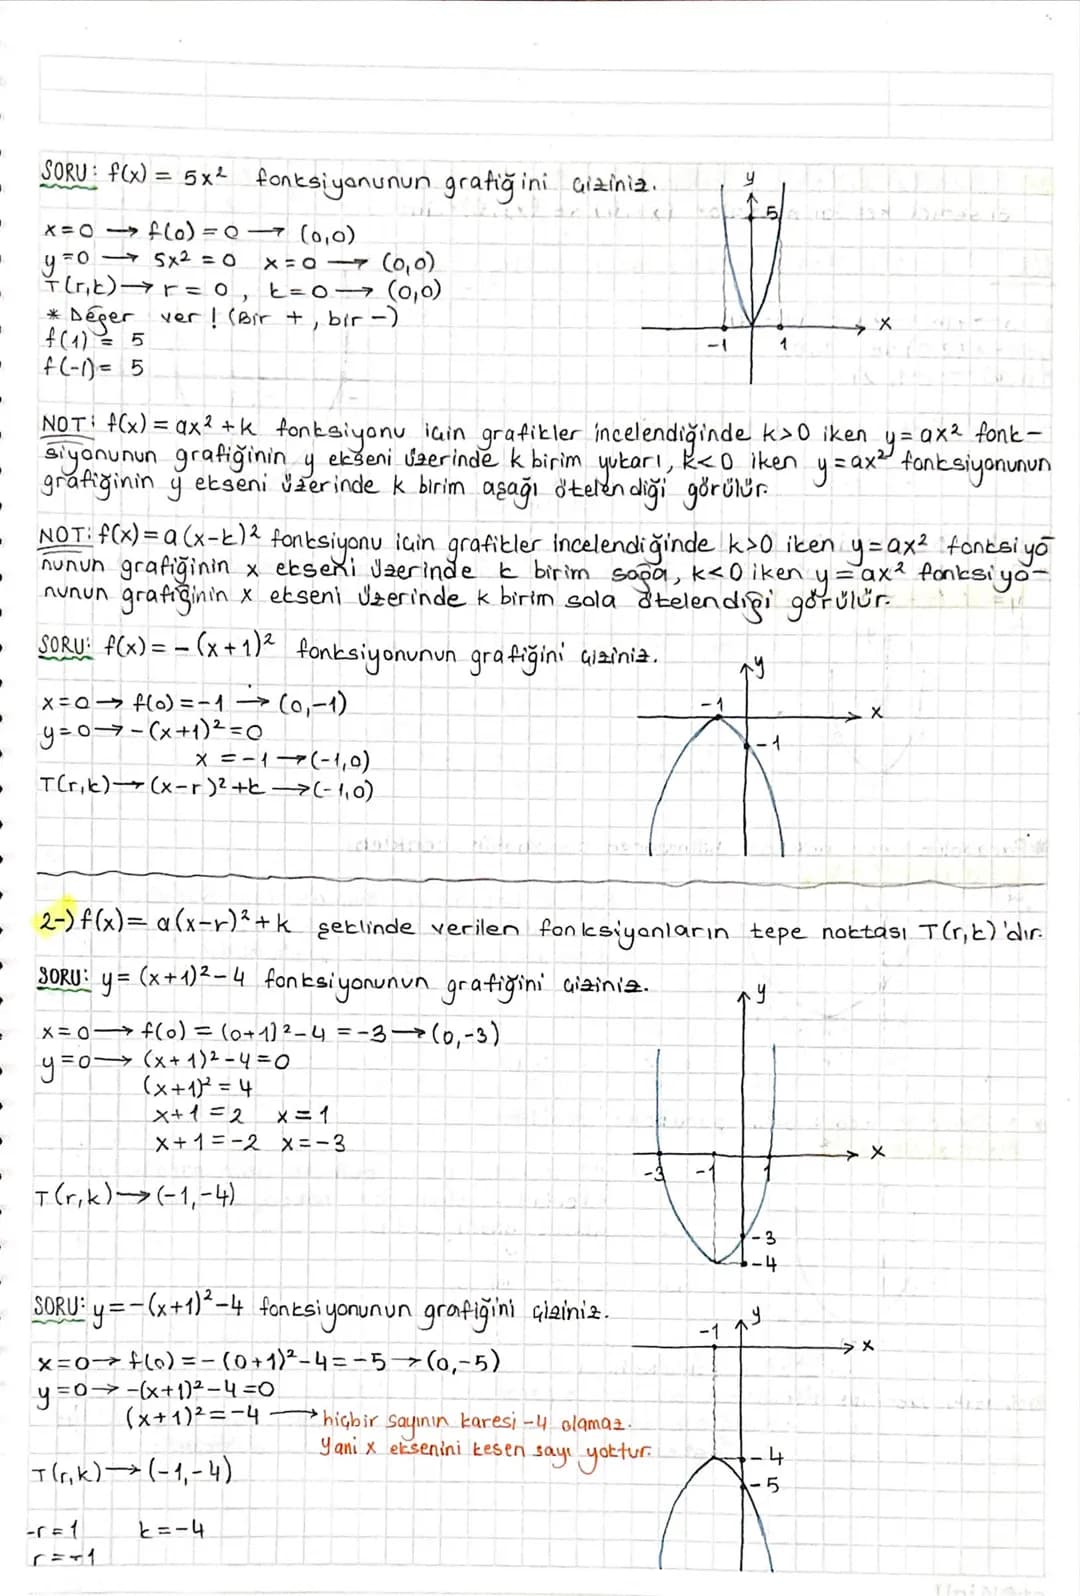 SORU: f(x) = 5x² fonksiyonunun grafiğini çiziniz.
x=0 → f(0) = 0 → (0,0)
y=0 → 5x² = 0 x=0 → (0,0)
T(r,k) → r = 0, k=0 → (0,0)
* Değer ver! (Bir +, bir -)
f(1) = 5
f(-1) = 5
y
5
x
-1 1
NOT: f(x) = ax² + k fonksiyonu için grafikler incelendiğinde k>0 iken y=ax² fonk-
siyonunun grafiğinin y ekseni üzerinde k birim yukarı, k<0 iken y=ax² fonksiyonunun
grafiğinin y ekseni üzerinde k birim aşağı ötelendiği görülür.
NOT: f(x) = a(x-k)² fonksiyonu için grafikler incelendiğinde k>0 iken y=ax² fonksiyo
nunun grafiğinin x ekseni üzerinde k birim sağa, k<0 iken y=ax² fonksiyo-
nunun grafiğinin x ekseni üzerinde k birim sola ötelendiği görülür.
SORU: f(x) = -(x+1)² fonksiyonunun grafiğini çiziniz.
x=0 → f(0) = -1 → (0,-1)
y=0 → -(x+1)² = 0
x = -1 → (-1,0)
T(r,k) → (x-r)²+k → (-1,0)
y
-1
x
-1
2-) f(x) = a(x-r)² + k şeklinde verilen fonksiyonların tepe noktası T(r,k)'dır.
SORU: y = (x+1)² - 4 fonksiyonunun grafiğini çiziniz.
x=0 → f(0) = (0+1)² - 4 = -3 → (0,-3)
y=0 → (x+1)² - 4 = 0
(x+1)² = 4
x+1 = 2 x = 1
x+1 = -2 x = -3
T(r,k) → (-1,-4)
y
x
-3 -1 1
-3
-4
SORU: y = -(x+1)² - 4 fonksiyonunun grafiğini çiziniz.
x=0 → f(0) = -(0+1)² - 4 = -5 → (0,-5)
y=0 → -(x+1)² - 4 = 0
(x+1)² = -4 → hiçbir sayının karesi -4 olamaz.
Yani x eksenini kesen sayı yoktur.
T(r,k) → (-1,-4)
-r = 1 k = -4
r = -1
y
-1
x
-4
-5